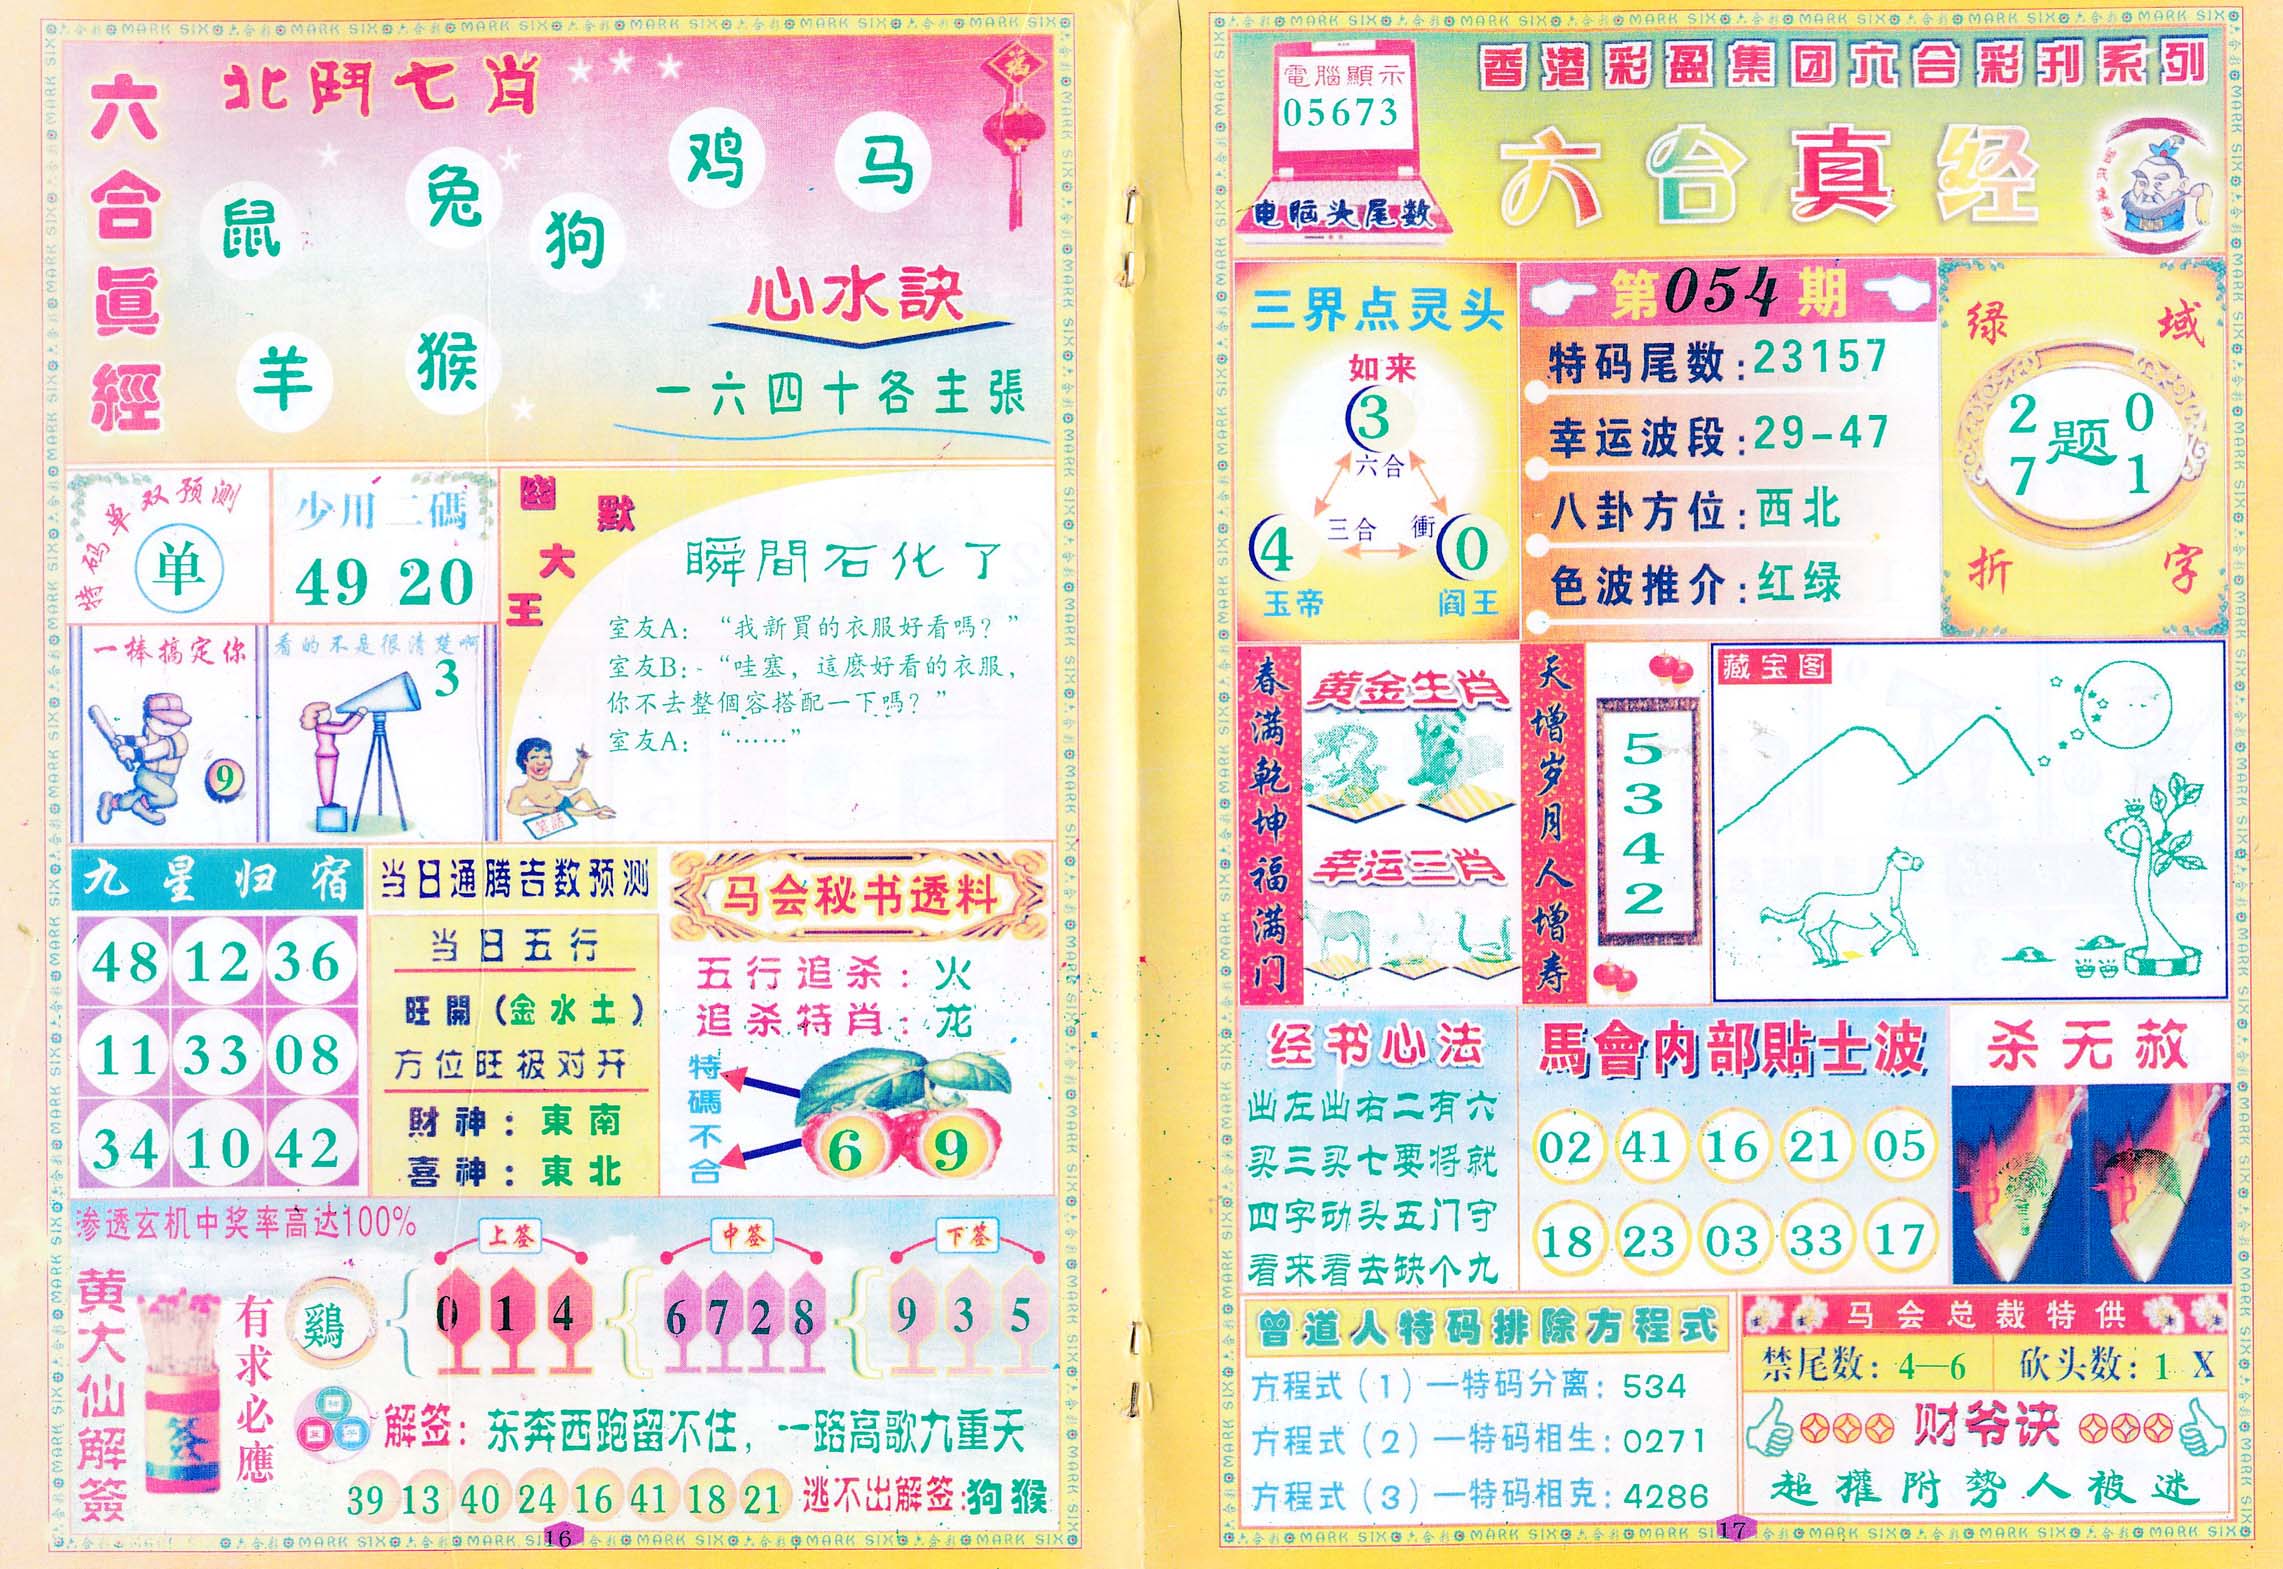 六合真經
北鬥七肖
鼠
兔
狗
鸡
马
羊
猴
福
心水訣
一六四十各主張
特码单双预测
单
少用二碼
49 20
一棒搞定你
9
看的不是很清楚啊
3
幽默大王
瞬間石化了
室友A：“我新買的衣服好看嗎？”
室友B：“哇塞，這麽好看的衣服，
你不去整個容搭配一下嗎？”
室友A：“……”
笑話
九星归宿
48 12 36
11 33 08
34 10 42
当日通腾吉数预测
当日五行
旺開（金水土）
方位旺极对开
財神：東南
喜神：東北
马会秘书透料
五行追杀：火
追杀特肖：龙
特碼不合
6 9
渗透玄机中奖率高达100%
黄大仙解簽
签
有求必應
鷄
上签
0 1 4
中签
6 7 2 8
下签
9 3 5
解签：东奔西跑留不住，一路高歌九重天
39 13 40 24 16 41 18 21
逃不出解签:狗猴
16
電腦顯示
05673
电脑头尾数
香港彩盈集团六合彩刊系列
六合真经
三界点灵头
如来
3
六合
三合
衝
4
0
玉帝
阎王
第054期
特码尾数:23157
幸运波段:29-47
八卦方位:西北
色波推介:红绿
绿域折字
2 0
题
7 1
春满乾坤福满门
黄金生肖
幸运三肖
天增岁月人增寿
5
3
4
2
藏宝图
经书心法
出左出右二有六
买三买七要将就
四字动头五门守
看来看去缺个九
馬會内部貼士波
02 41 16 21 05
18 23 03 33 17
杀无赦
曾道人特码排除方程式
方程式（1）—特码分离：534
方程式（2）—特码相生：0271
方程式（3）—特码相克：4286
马会总裁特供
禁尾数：4—6
砍头数：1 X
财爷诀
趋權附勢人被迷
17
MARK SIX 六合彩